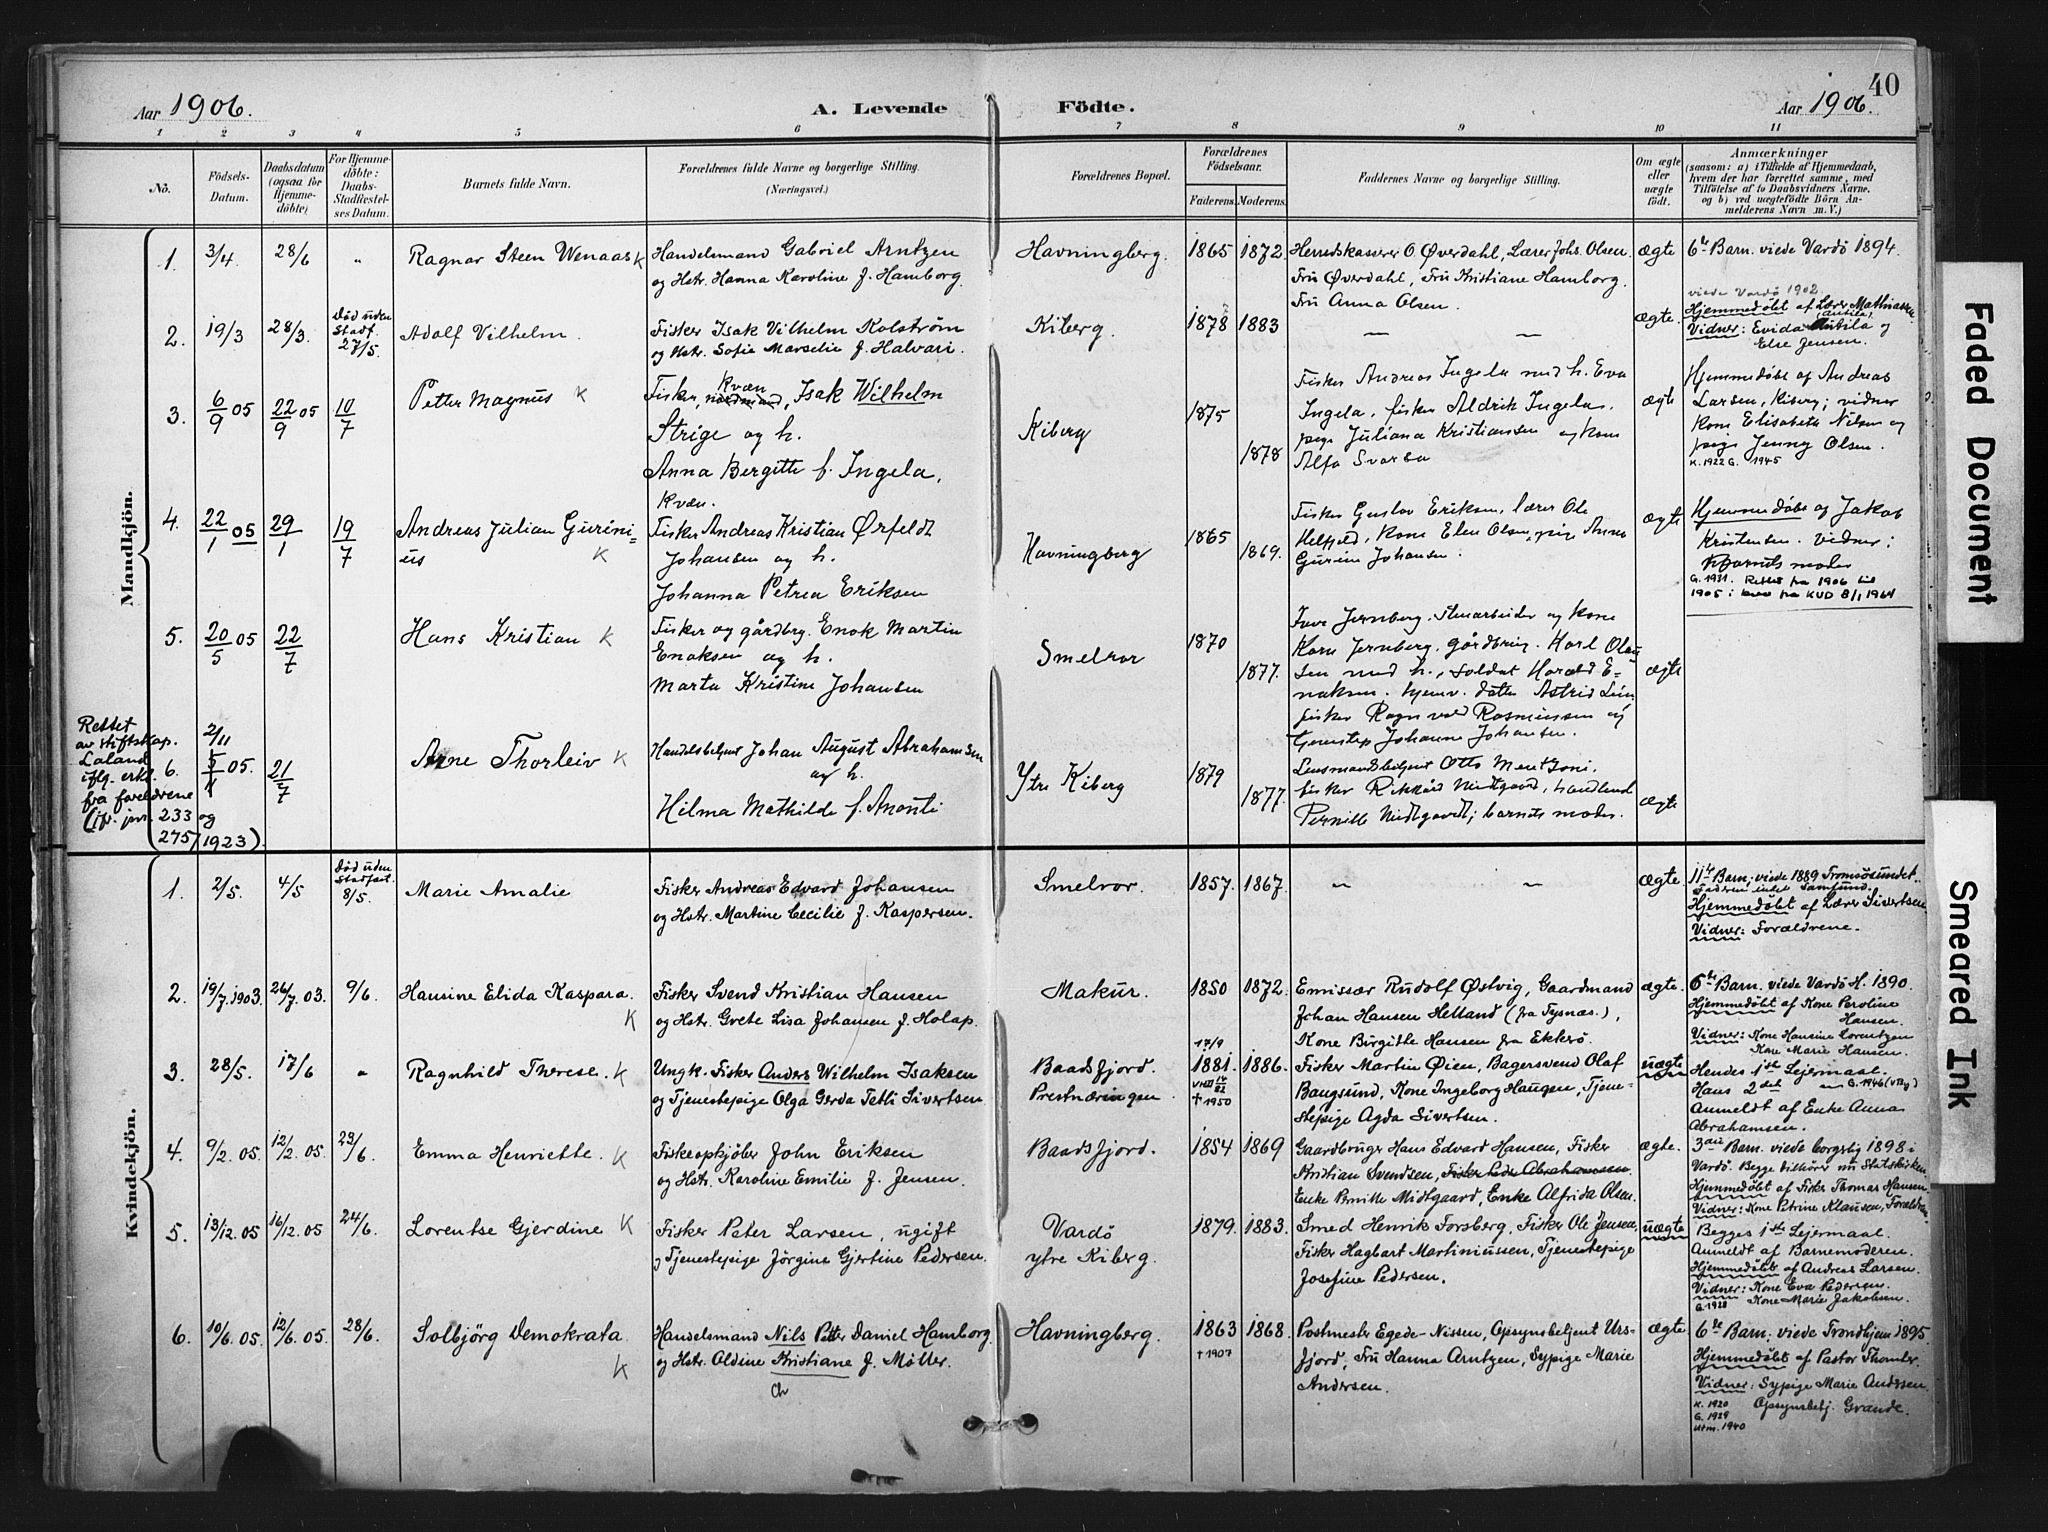 40
Aar 1906.
A. Levende Födte.
Aar 1906.
1 2 3 4 5 6 7 8 9 10 11
No.
Födsels-Datum.
Daabsdatum (ogsaa for Hjemmedöbte)
For Hjemmedöbte: Daabs-Stadfestelses Datum.
Barnets fulde Navn.
Forældrenes fulde Navne og borgerlige Stilling.
(Næringsvei.)
Forældrenes Bopæl.
Forældrenes Födselsaar.
Faderens. Moderens.
Faddernes Navne og borgerlige Stilling.
Om ægte eller uægte födt.
Anmærkninger
(saasom: a) i Tilfælde af Hjemmedaab,
hvem der har forrettet samme, med
Tilföielse af to Daabsvidners Navne.
og b) ved uægtefödte Börn Anmelderens Navn m. V.)
Mandkjön.
1. 3/4 28/6 " Ragnar Steen Wenaas K
Handelsmand Gabriel Arntzen
og Hstr. Hanna Karoline f. Hamborg
Havningberg. 1865 1872.
Herredskasserer O. Øverdahl, Lærer Johs. Olsen.
Fru Øverdahl, Fru Kristiane Hamborg.
Fru Anna Olsen.
ægte 6te Barn. viede Vardö 1894.
2. 19/3 28/3. Död uden Stadf. 27/5. Adolf Vilhelm.
Fisker Isak Vilhelm Kolström
og Hstr. Sofie Marselie f. Halvari.
Kiberg. 1878 1883 — — ægte.
viede Vardö 1902.
Hjemmedöbt af Lærer Mathiassen.
(Antila)
Vidner: Evida Antila og
Else Jensen.
3. 6/9 05 22/9 05 10/7 Petter Magnus K
Kvæn
Fisker, nordmand, Isak Wilhelm
Strige og h.
Anna Bergitte f. Ingela,
Kvæn.
Kiberg 1875 1878
Fisker Andreas Ingela med h. Eva
Ingela, fisker Aldrik Ingela,
pige Juliana Kristiansen og kone
Alfa Svarba
ægte
Hjemmedöbt af Andreas
Larsen, Kiberg; vidner
kone Elisabeth Nilsen og
pige Jenny Olsen.
K. 1922 G. 1945
4. 22/1 05 29/1 19/7 Andreas Julian Gurinius K
Fisker Andreas Kristian Ørfeldt
Johansen og h.
Johanna Petrea Eriksen
Havningberg 1865 1869.
Fisker Gustav Eriksen, lærer Ole
Helfjeld, Kone Elen Olsen, pige Anna
Gurine Johansen.
ægte
Hjemmedöbt af Jakob
Kristensen. Vidner:
Barnets moder
G. 1931. Rettet fra 1906 til
1905 i brev fra KUD 8/1 1964
5. 20/5 05 22/7 Hans Kristian K
Fisker og gårdbrg. Enok Martin
Enoksen og h.
Marta Kristine Johansen
Smelror 1870 1877.
Jernberg, Stenarbeider og kone
Jernberg, gårdbrug. Karl Olaussen
med h., soldat Harald Enoksen.
hjemv. datter Astrid
fisker Ragnvald Rasmussen og
tjenestep. Johanne Johansen.
ægte
Rettet
av stiftskap.
Laland
iflg. erkl.
fra foreldrene
(jfr. jnr. 233 og
275/1923).
6. 2/11 05. 21/7 Arne Thorleiv K
Handelsbetjent Johan August Abrahamsen
og h.
Hilma Mathilde f. Anonti
Ytre Kiberg 1879 1877.
Lensmandsbetjent Otto Mentzoni,
fisker Rikhard Midtgaard, handlende
Pernille Midtgaard; barnets moder.
ægte
Kvindekjön.
1. 2/5. 4/5 Död uden Stadfæst. 8/5. Marie Amalie
Fisker Andreas Edvard Johansen
og Hstr. Martine Cecilie f. Kaspersen.
Smelror. 1857. 1867. — — ægte.
11te Barn. viede 1889 Tromsösundet.
Faderen intet Samfund.
Hjemmedöbt af Lærer Sivertsen
Vidner: Forældrene.
2. 19/7. 1903. 26/7. 03. 9/6. Hansine Elida Kaspara. K
Fisker Svend Kristian Hansen
og Hstr. Grete Lisa Johansen f. Holap.
Makur. 1850 1872.
Emissær Rudolf Østvig, Gaardmand
Johan Hansen Helland (fra Tysnæs.),
Kone Birgitte Hansen fra Ekkerö.
ægte.
6te Barn. viede Vardö H. 1890.
Hjemmedöbt af Kone Peroline
Hansen.
Vidner: Kone Hansine Lorentzen
Kone Marie Hansen.
3. 28/5. 17/6 " Ragnhild Therese. K
Ungk. Fisker Anders Wilhelm Isaksen
og Tjenestepige Olga Gerda Tetli Sivertsen
Baadsfjord.
Prestnæringen
17/9 1881. † 1950 1886.
Fisker Martin Øien, Bagersvend Olaf
Bangsund, Kone Ingeborg Haugen, Tjenestepige
Agda Sivertsen.
uægte
Hendes 1ste Lejermaal.
Hans 2det — G. 1946
Anmeldt af Enke Anna
Abrahamsen.
4. 9/2. 05. 12/2. 05 23/6. Emma Henriette. K
Fiskeopkjöber John Eriksen
og Hstr. Karoline Emilie f. Jensen.
Baadsfjord. 1854 1869
Gaardbruger Hans Edvard Hansen, Fisker
Kristian Svendsen, Fisker Peder Abrahamsen
Enke Pernille Midtgaard, Enke Alfrida Olsen.
ægte.
3die Barn. viede borgerlig 1898 i
Vardö. Begge tilhörer nu Statskirken
Hjemmedöbt af Fisker Thomas Hansen
Vidner: Kone Petrine Klausen, Forældrene.
5. 13/12. 05 16/12. 05 24/6. Lorentse Gjerdine K
Fisker Peter Larsen, ugift
og Tjenestepige Jörgine Gjertine Pedersen.
Vardö
ytre Kiberg. 1879. 1883.
Smed Henrik Forsberg, Fisker Ole Jensen,
Fisker Hagbart Martiniussen, Tjenestepige
Josefine Pedersen.
uægte
Begges 1ste Lejermaal.
Anmeldt af Barnemoderen.
Hjemmedöbt af Andreas Larsen.
Vidner: Kone Eva Pedersen.
G. 1928 Kone Marie Jakobsen.
6. 10/6. 05. 12/6. 05. 28/6. Solbjörg Demokrata K
Handelsmand Nils Petter Daniel Hamborg
og Hstr. Oldine Kristiane f. Möller.
Ch
Havningberg. 1863 † 1907 1868.
Postmester Egede-Nissen, Opsynsbetjent Ursfjord,
Fru Hanna Arntzen, Sypige Marie
Andersen.
ægte
6te Barn. viede Trondhjem 1895
Hjemmedöbt af Pastor Thomter.
Vidner: Sypige Marie Andersen
K. 1920 Opsynsbetj. Grande.
G. 1929
utm. 1940
Faded Document
Smeared Ink